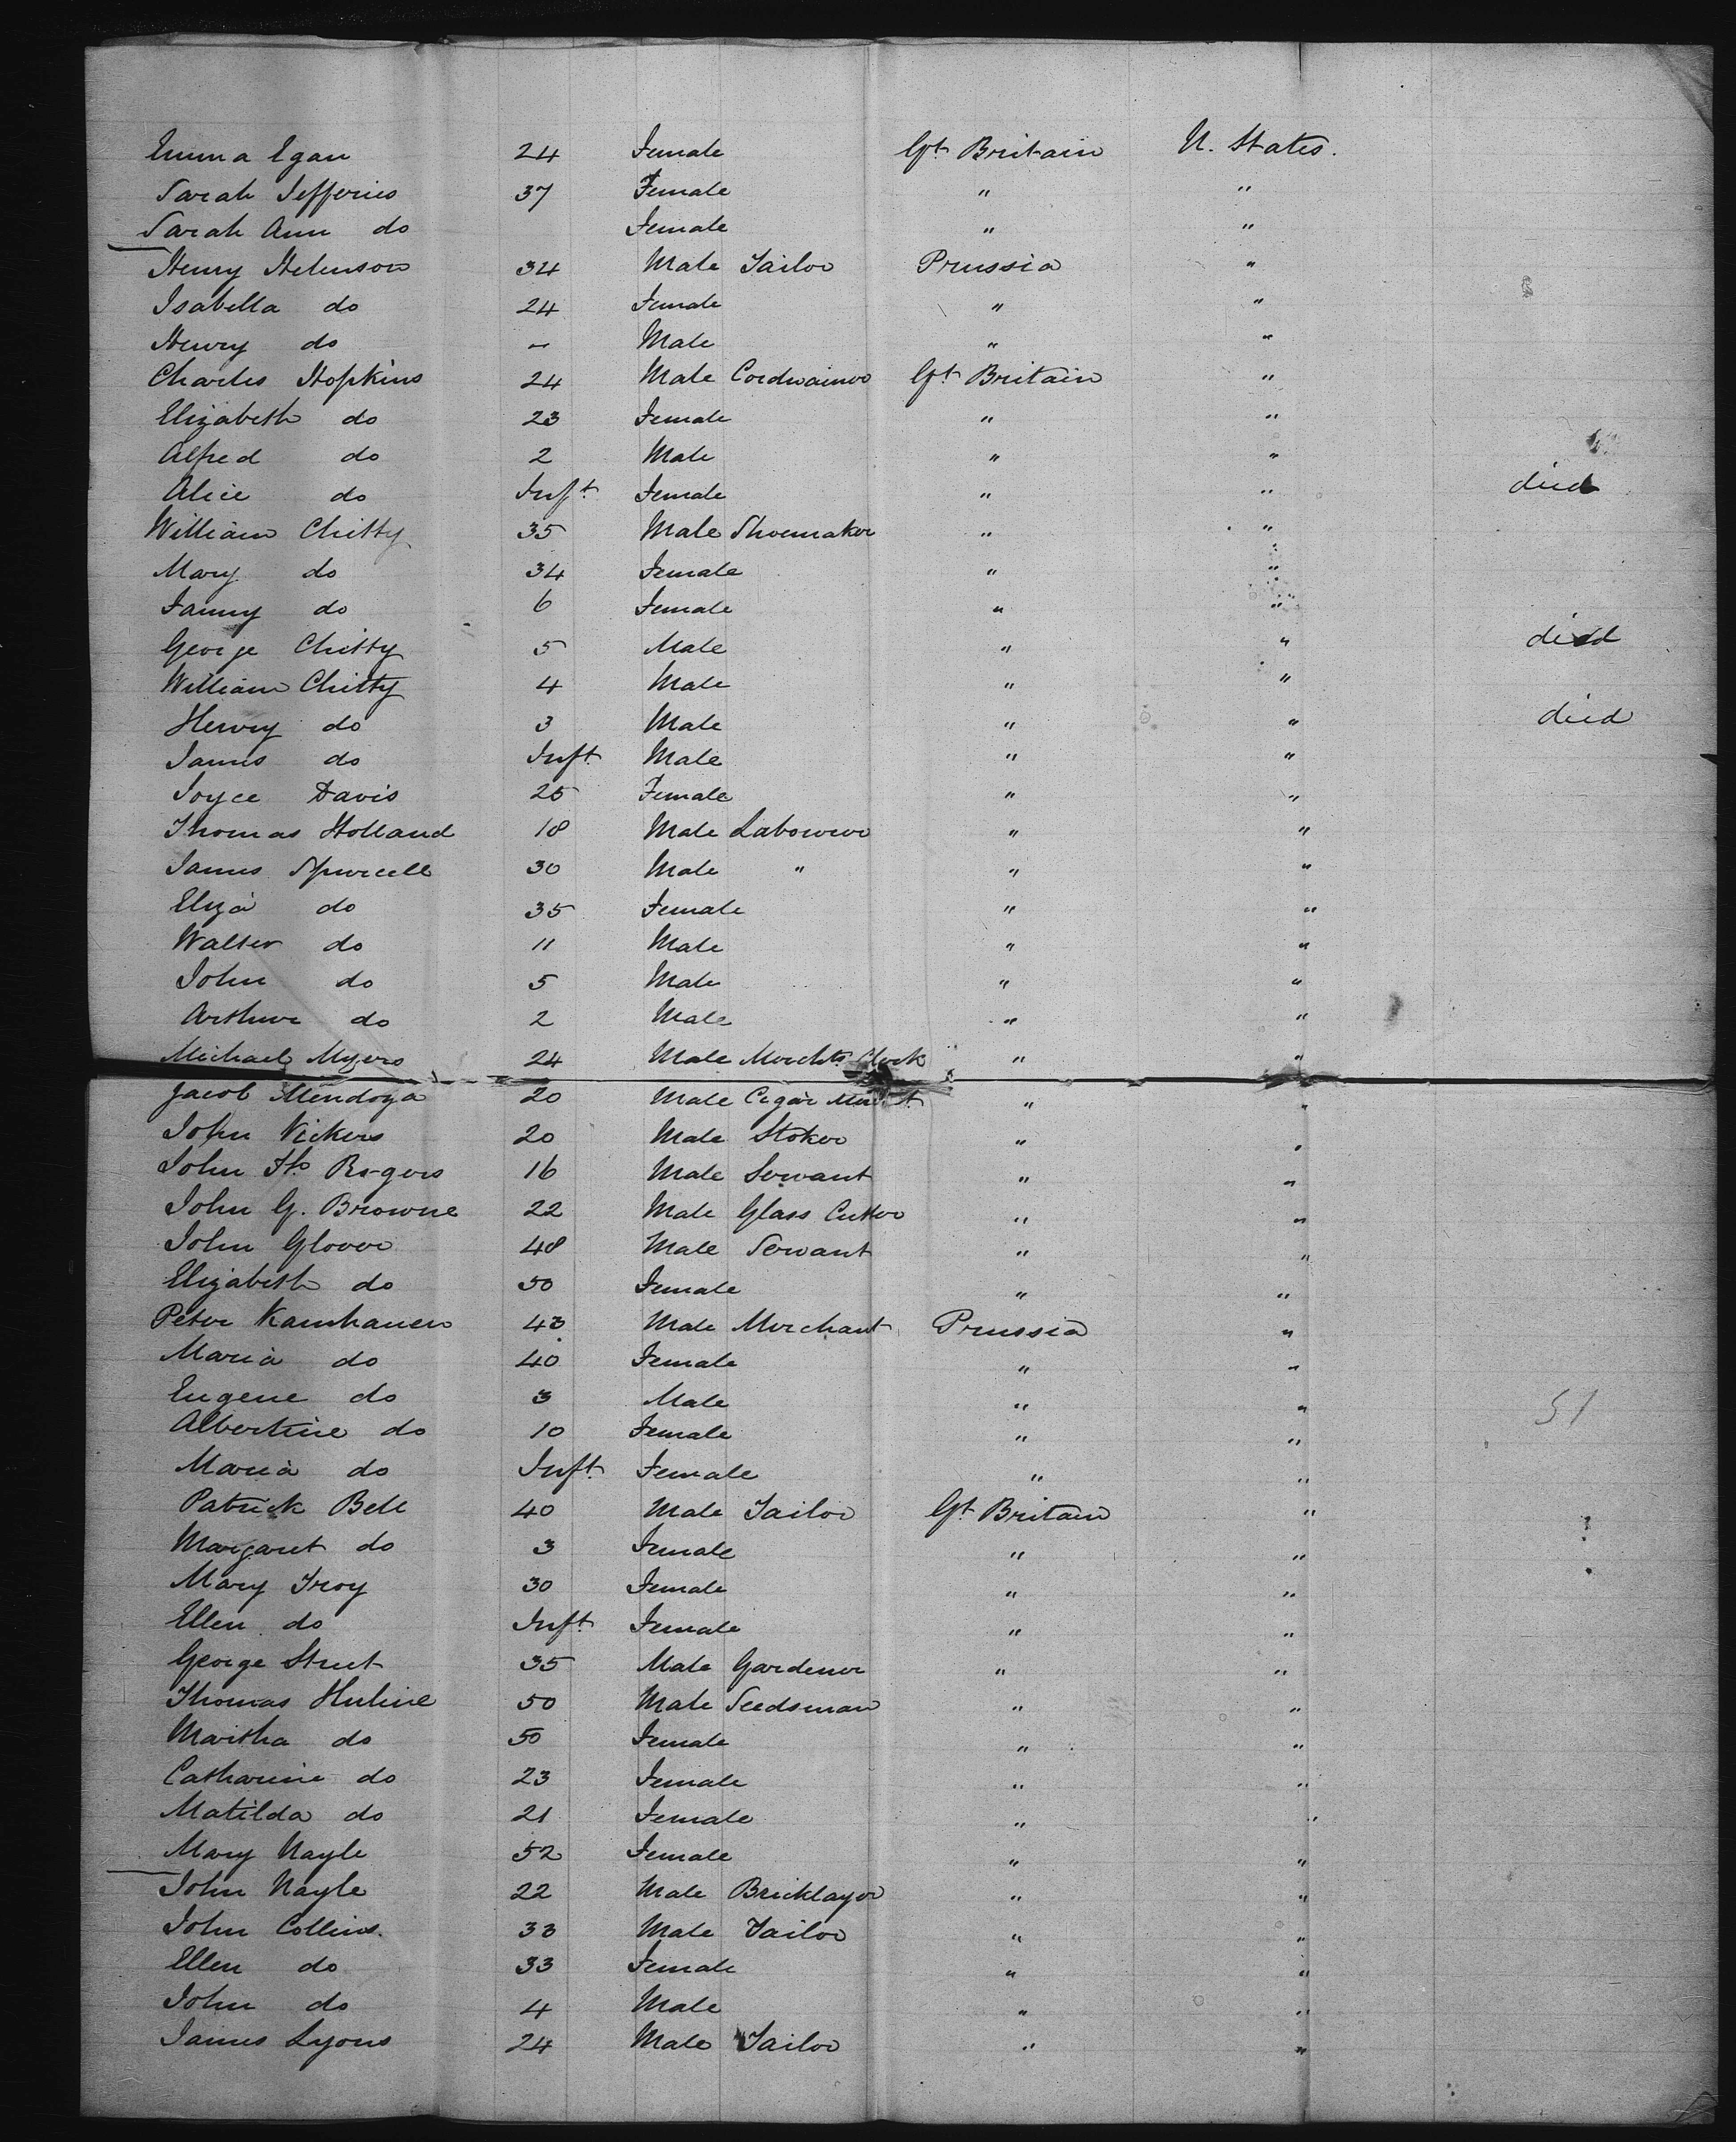 Emma Egan 24 Female Gt. Britain U. States.
Sarah Jefferies 37 Female " "
Sarah Ann do Female " "
Henry Helmson 34 Male Tailor Prussia "
Isabella do 24 Female " "
Henry do - Male " "
Charles Hopkins 24 Male Cordwainer Gt. Britain "
Elizabeth do 23 Female " "
Alfred do 2 Male " "
Alice do Inft. Female " " died
William Chitty 35 Male Shoemaker " "
Mary do 34 Female " "
Fanny do 6 Female " "
George Chitty 5 Male " " died
William Chitty 4 Male " "
Henry do 3 Male " " died
James do Inft. Male " "
Joyce Davis 25 Female " "
Thomas Holland 18 Male Labourer " "
James Spurcell 30 Male " " "
Eliza do 35 Female " "
Walter do 11 Male " "
John do 5 Male " "
Arthur do 2 Male " "
Michael Myers 24 Male Merchts. Clerk " "
Jacob Mendoza 20 Male Cigar " "
John Vickers 20 Male Stoker " "
John Rogers 16 Male Servant " "
John G. Browne 22 Male Glass Cutter " "
John Glover 48 Male Servant " "
Elizabeth do 50 Female " "
Peter Kamhauen 43 Male Merchant Prussia "
Maria do 40 Female " "
Eugene do 3 Male " " 51
Albertine do 10 Female " "
Maria do Inft. Female " "
Patrick Bell 40 Male Tailor Gt. Britain "
Margaret do 3 Female " "
Mary Troy 30 Female " "
Ellen do Inft. Female " "
George Street 35 Male Gardener " "
Thomas Huline 50 Male Seedsman " "
Martha do 50 Female " "
Catharine do 23 Female " "
Matilda do 21 Female " "
Mary Nayle 52 Female " "
John Nayle 22 Male Bricklayer " "
John Collins. 33 Male Tailor " "
Ellen do 33 Female " "
John do 4 Male " "
James Lyons 24 Male Tailor " "